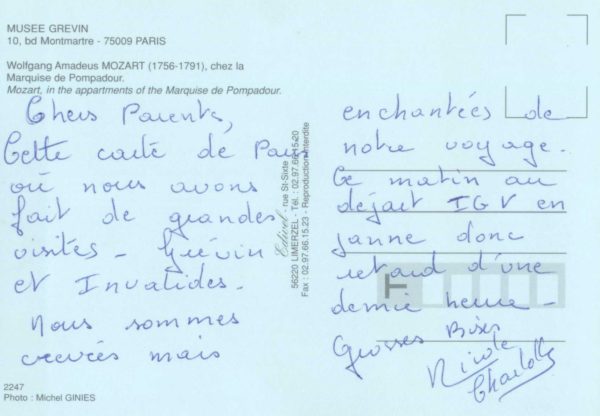 MUSEE GREVIN
10, bd Montmartre - 75009 PARIS
Wolfgang Amadeus MOZART (1756-1791), chez la
Marquise de Pompadour.
Mozart, in the appartments of the Marquise de Pompadour.
Chers Parents,
Cette carte de Paris
où nous avons
fait de grandes
visites - Grévin
et Invalides.
Nous sommes
crevées mais
rue St-Sixte
56220 LIMERZEL - Tél. : 02.97.66.15.20
Fax : 02.97.66.15.23 - Reproduction interdite
enchantées de
notre voyage.
Ce matin au
départ TGV en
panne donc
retard d'une
demie heure -
Grosses Bises
Nicole
Charlotte
2247
Photo : Michel GINIES